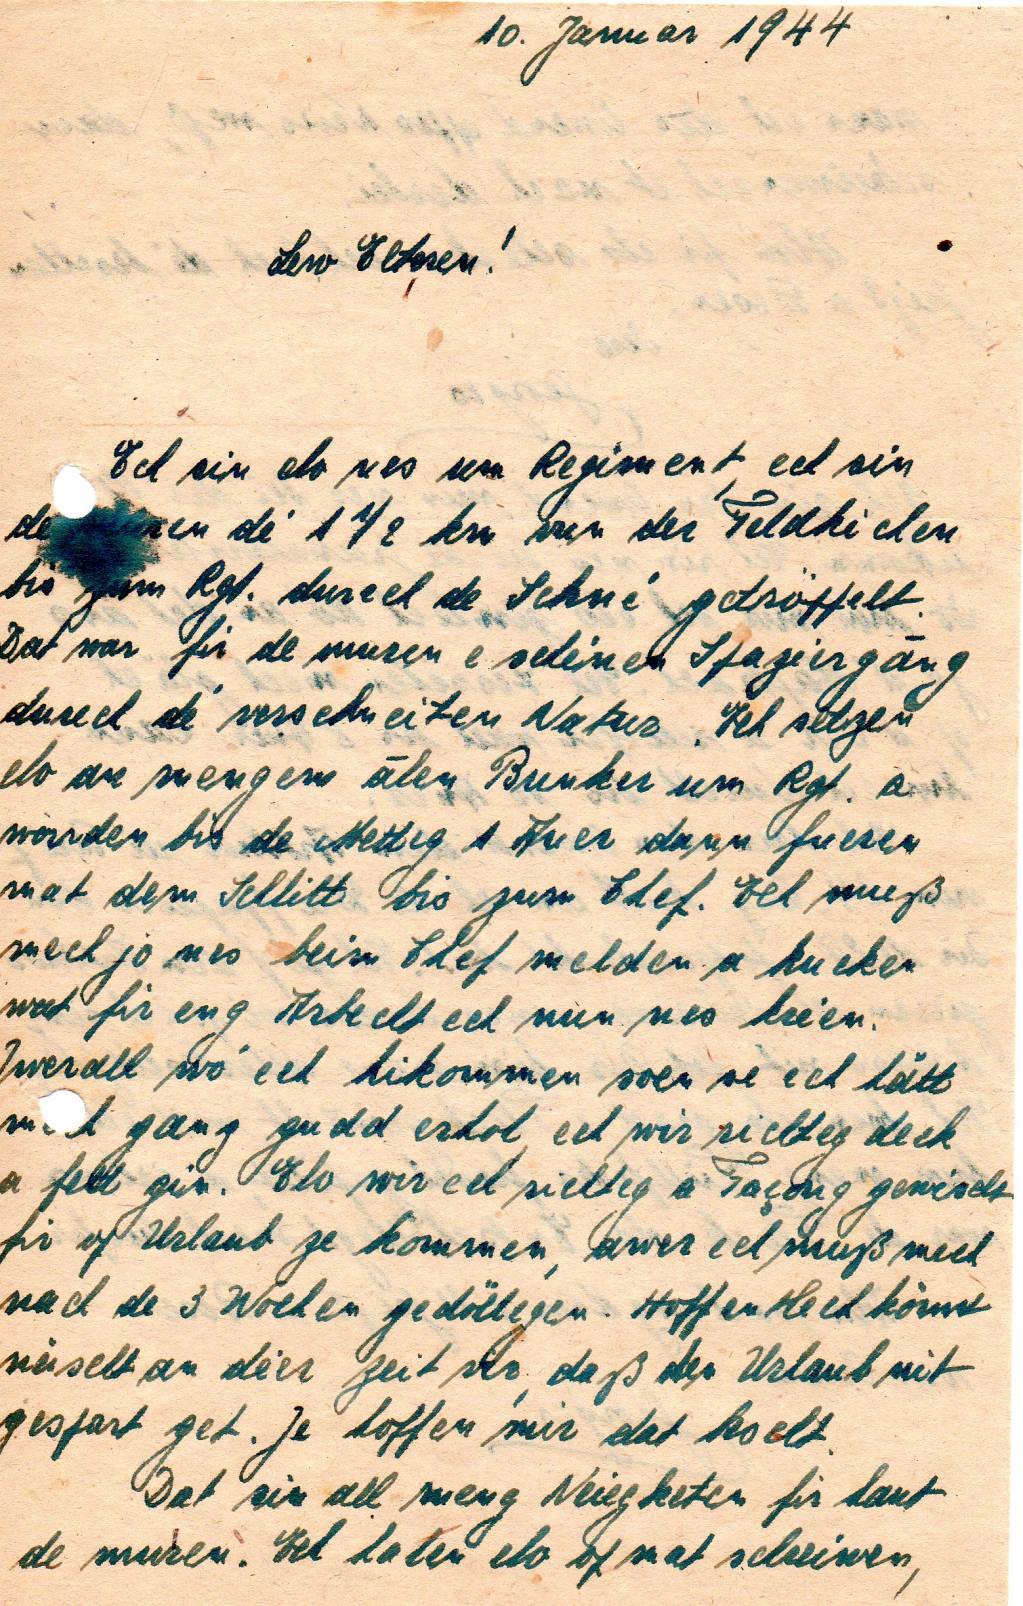 10. Januar 1944
Lew Elteren!
Ech sin elo nes um Regiment, ech sin
de muren dé 1 1/2 km vun der Feldkichen
bis zum Rgt. durech de Schné getröppelt.
Dat war fir de muren e scheinen Spaziergāng
durech dé verschneiten Natur. Ech setzen
elo an mengem ālen Bunker um Rgt. a
warden bis de Metteg 1 Auer dann fueren
mat dem Schlitt bis zum Chef. Ech muß
mech jo nes beim Chef melden a kucken
wat fir eng Arbecht ech nun nes kréen.
Iwerall wó ech hikommen soen se ech hätt
mech gang gudd erhol, ech wir richteg deck
a fett gin. Elo wir ech richteg a Façong gewiescht
fir op Urlaub ze kommen, awer ech muß mech
nach de 3 Wochen gedöllegen. Hoffentlech könnt
näischt an déer Zeit vir, daß den Urlaub nit
gespart get. Je hoffen mir dat bescht.
Dat sin all meng Neiegketen fir haut
de muren. Ech halen elo op mat schreiwen,